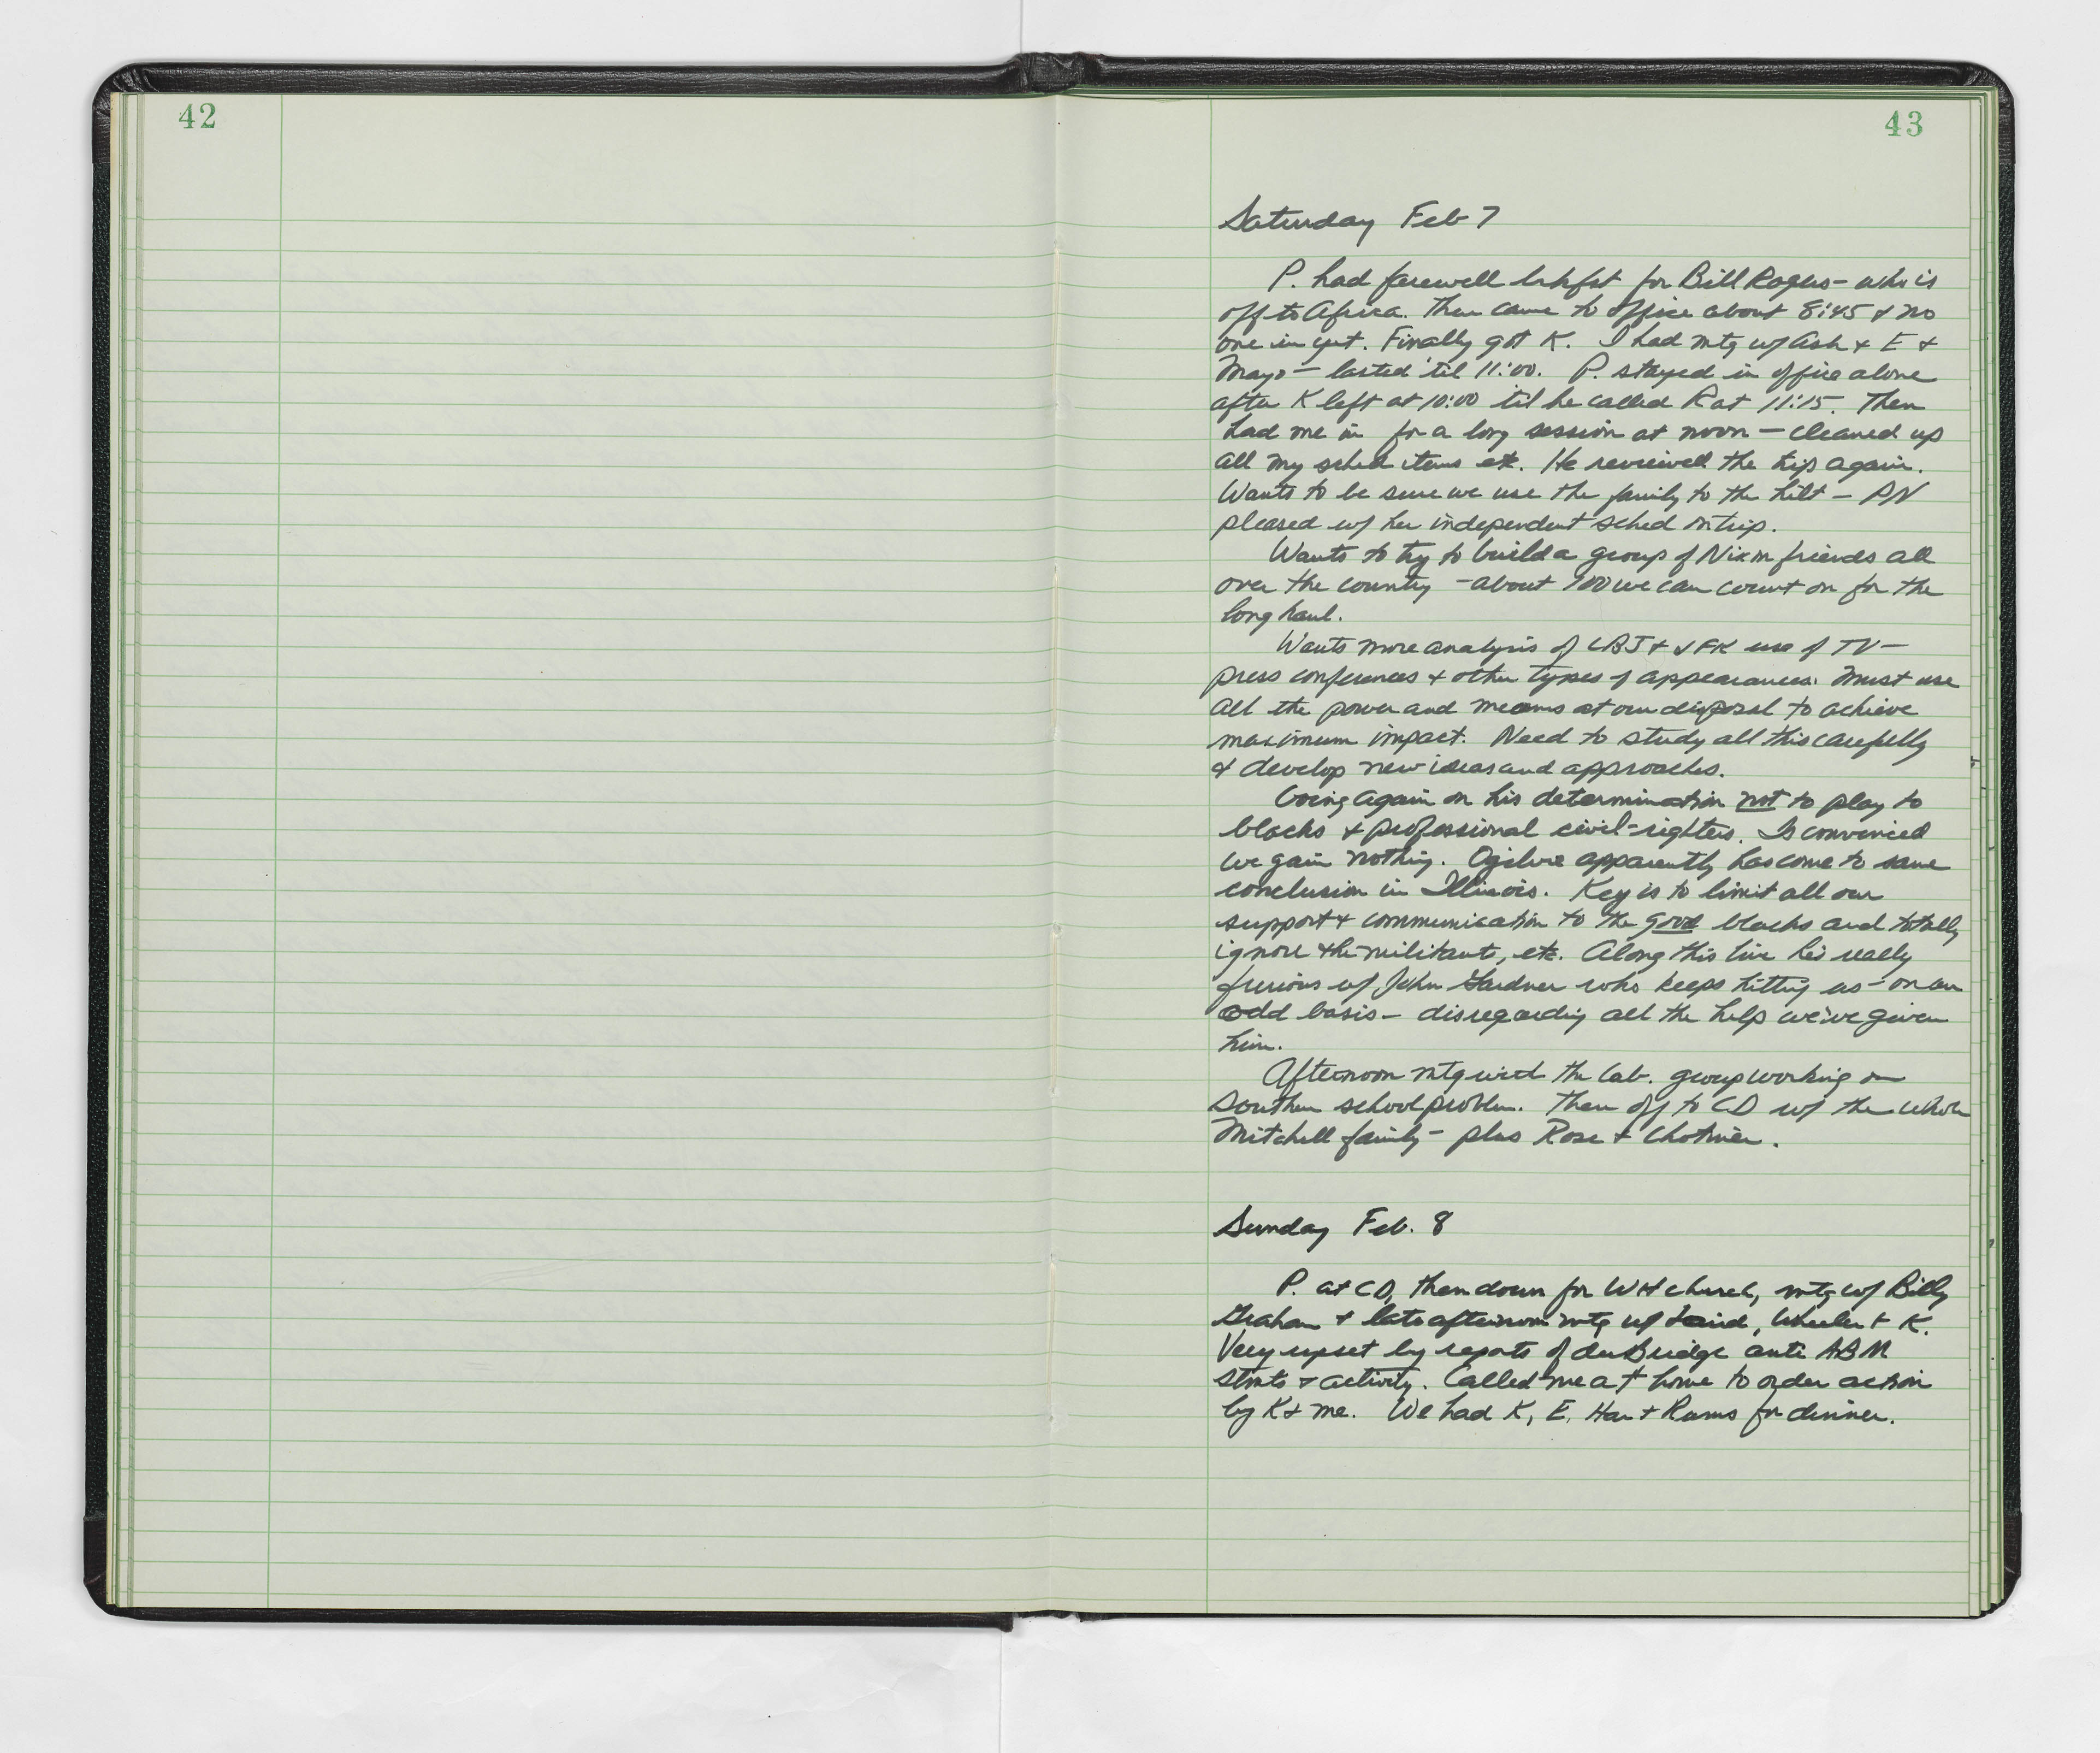 42
43
Saturday Feb 7
P. had farewell bkfst for Bill Rogers - who is
off to Africa. Then came to office about 8:45 & no
one in yet. Finally got K. I had mtg w/ Ash & E &
Mayo - lasted 'til 11:00. P. stayed in office alone
after K left at 10:00 'til he called R at 11:15. Then
had me in for a long session at noon - cleaned up
all my sched items etc. He reviewed the trip again.
Wants to be sure we use the family to the hilt - PN
pleased w/ her independent sched on trip.
Wants to try to build a group of Nixon friends all
over the country - about 100 we can count on for the
long haul.
Wants more analysis of LBJ & JFK use of TV -
press conferences & other types of appearances. Must use
all the power and means at our disposal to achieve
maximum impact. Need to study all this carefully
& develop new ideas and approaches.
Going again on his determination not to play to
blacks & professional civil-righters. Is convinced
we gain nothing. Ogilvie apparently has come to same
conclusion in Illinois. Key is to limit all our
support & communication to the good blacks and totally
ignore the militants, etc. Along this line he's really
furious w/ John Gardner who keeps hitting us - on an
odd basis - disregarding all the help we've given
him.
Afternoon mtg with the Cab. group working on
Southern school problem. Then off to CD w/ the whole
Mitchell family - plus Rose & Chotiner.
Sunday Feb. 8
P. at CD, then down for WH church, mtg w/ Billy
Graham & late afternoon mtg w/ Laird, Wheeler & K.
Very upset by reports of duBridge anti ABM
stmts & activity. Called me at home to order action
by K & me. We had K, E, Har & Rums for dinner.